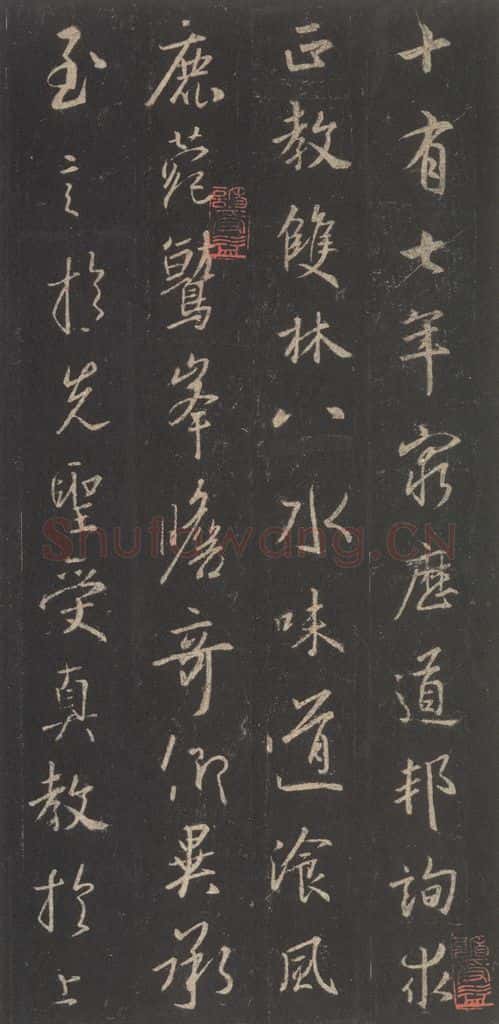 十有七年窮歷道邦詢求
正教雙林八水味道飡風
鹿菀鷲峯瞻奇仰異承
至言於先聖受真教於上
Shufawang.CN